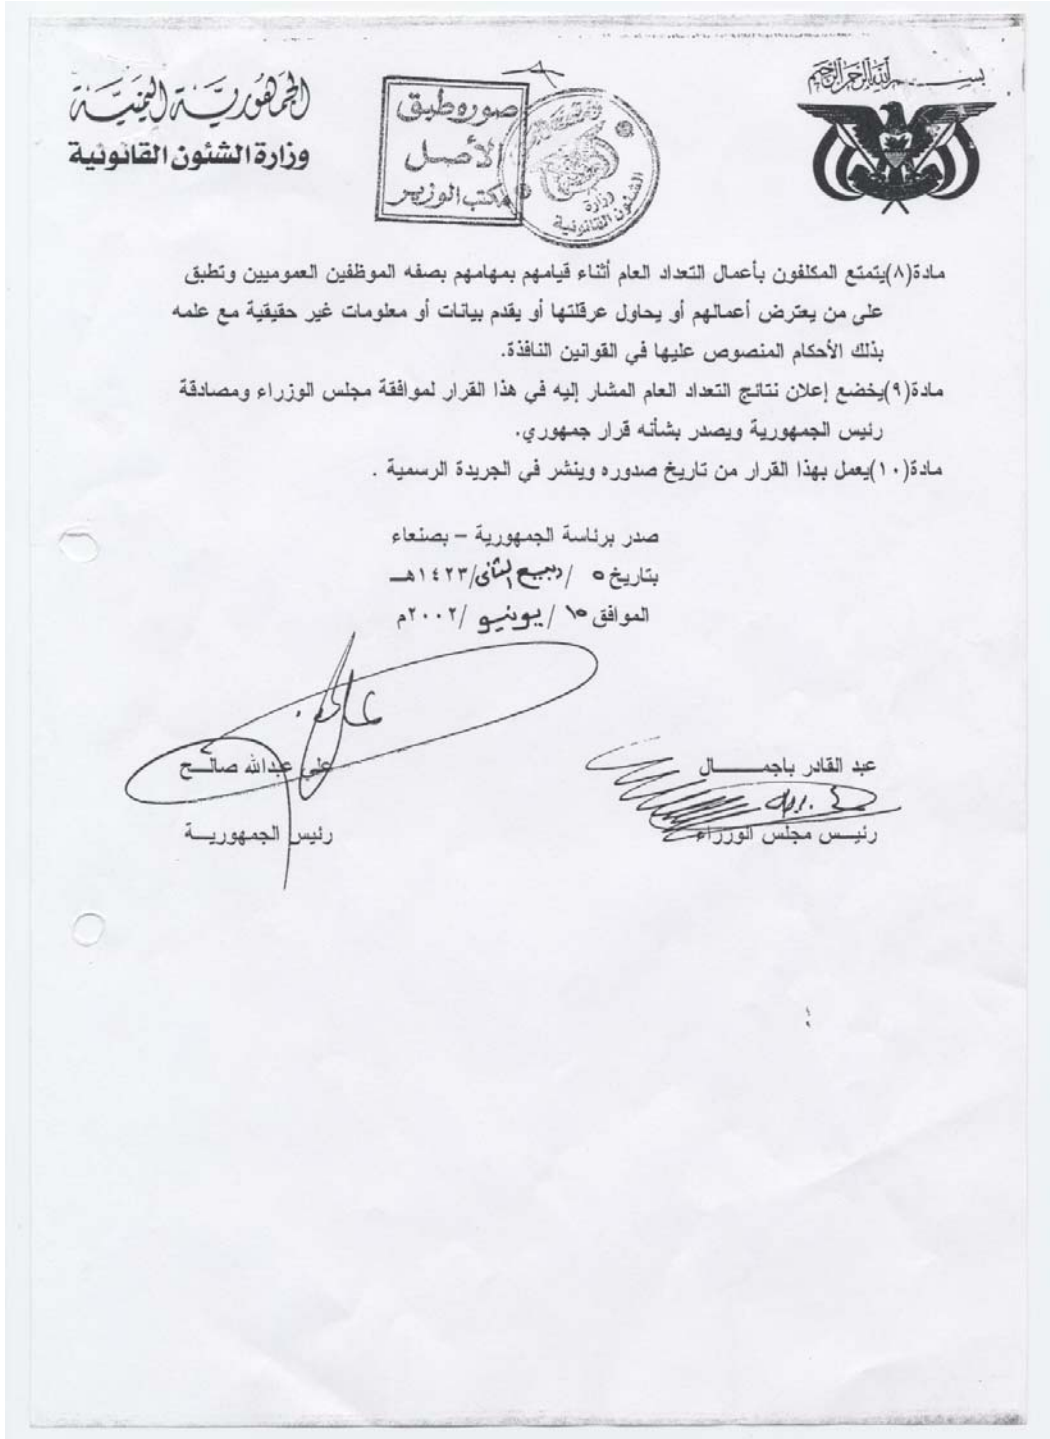 بسم الله الرحمن الرحيم
الجمهورية اليمنية
وزارة الشئون القانونية
صوره طبق
الأصل
مكتب الوزير
وزارة
الشئون القانونية
مادة(٨)يتمتع المكلفون بأعمال التعداد العام أثناء قيامهم بمهامهم بصفه الموظفين العموميين وتطبق
على من يعترض أعمالهم أو يحاول عرقلتها أو يقدم بيانات أو معلومات غير حقيقية مع علمه
بذلك الأحكام المنصوص عليها في القوانين النافذة.
مادة(٩)يخضع إعلان نتائج التعداد العام المشار إليه في هذا القرار لموافقة مجلس الوزراء ومصادقة
رئيس الجمهورية ويصدر بشأنه قرار جمهوري.
مادة(١٠)يعمل بهذا القرار من تاريخ صدوره وينشر في الجريدة الرسمية .
صدر برئاسة الجمهورية – بصنعاء
بتاريخ ٥ /ربيع الثاني/١٤٢٣هــ
الموافق ١٥ /يونيو /٢٠٠٢م
عبد القادر باجمـــــــال
علي عبدالله صالـــح
رئيـــس مجلس الوزراء
رئيس الجمهوريـــة